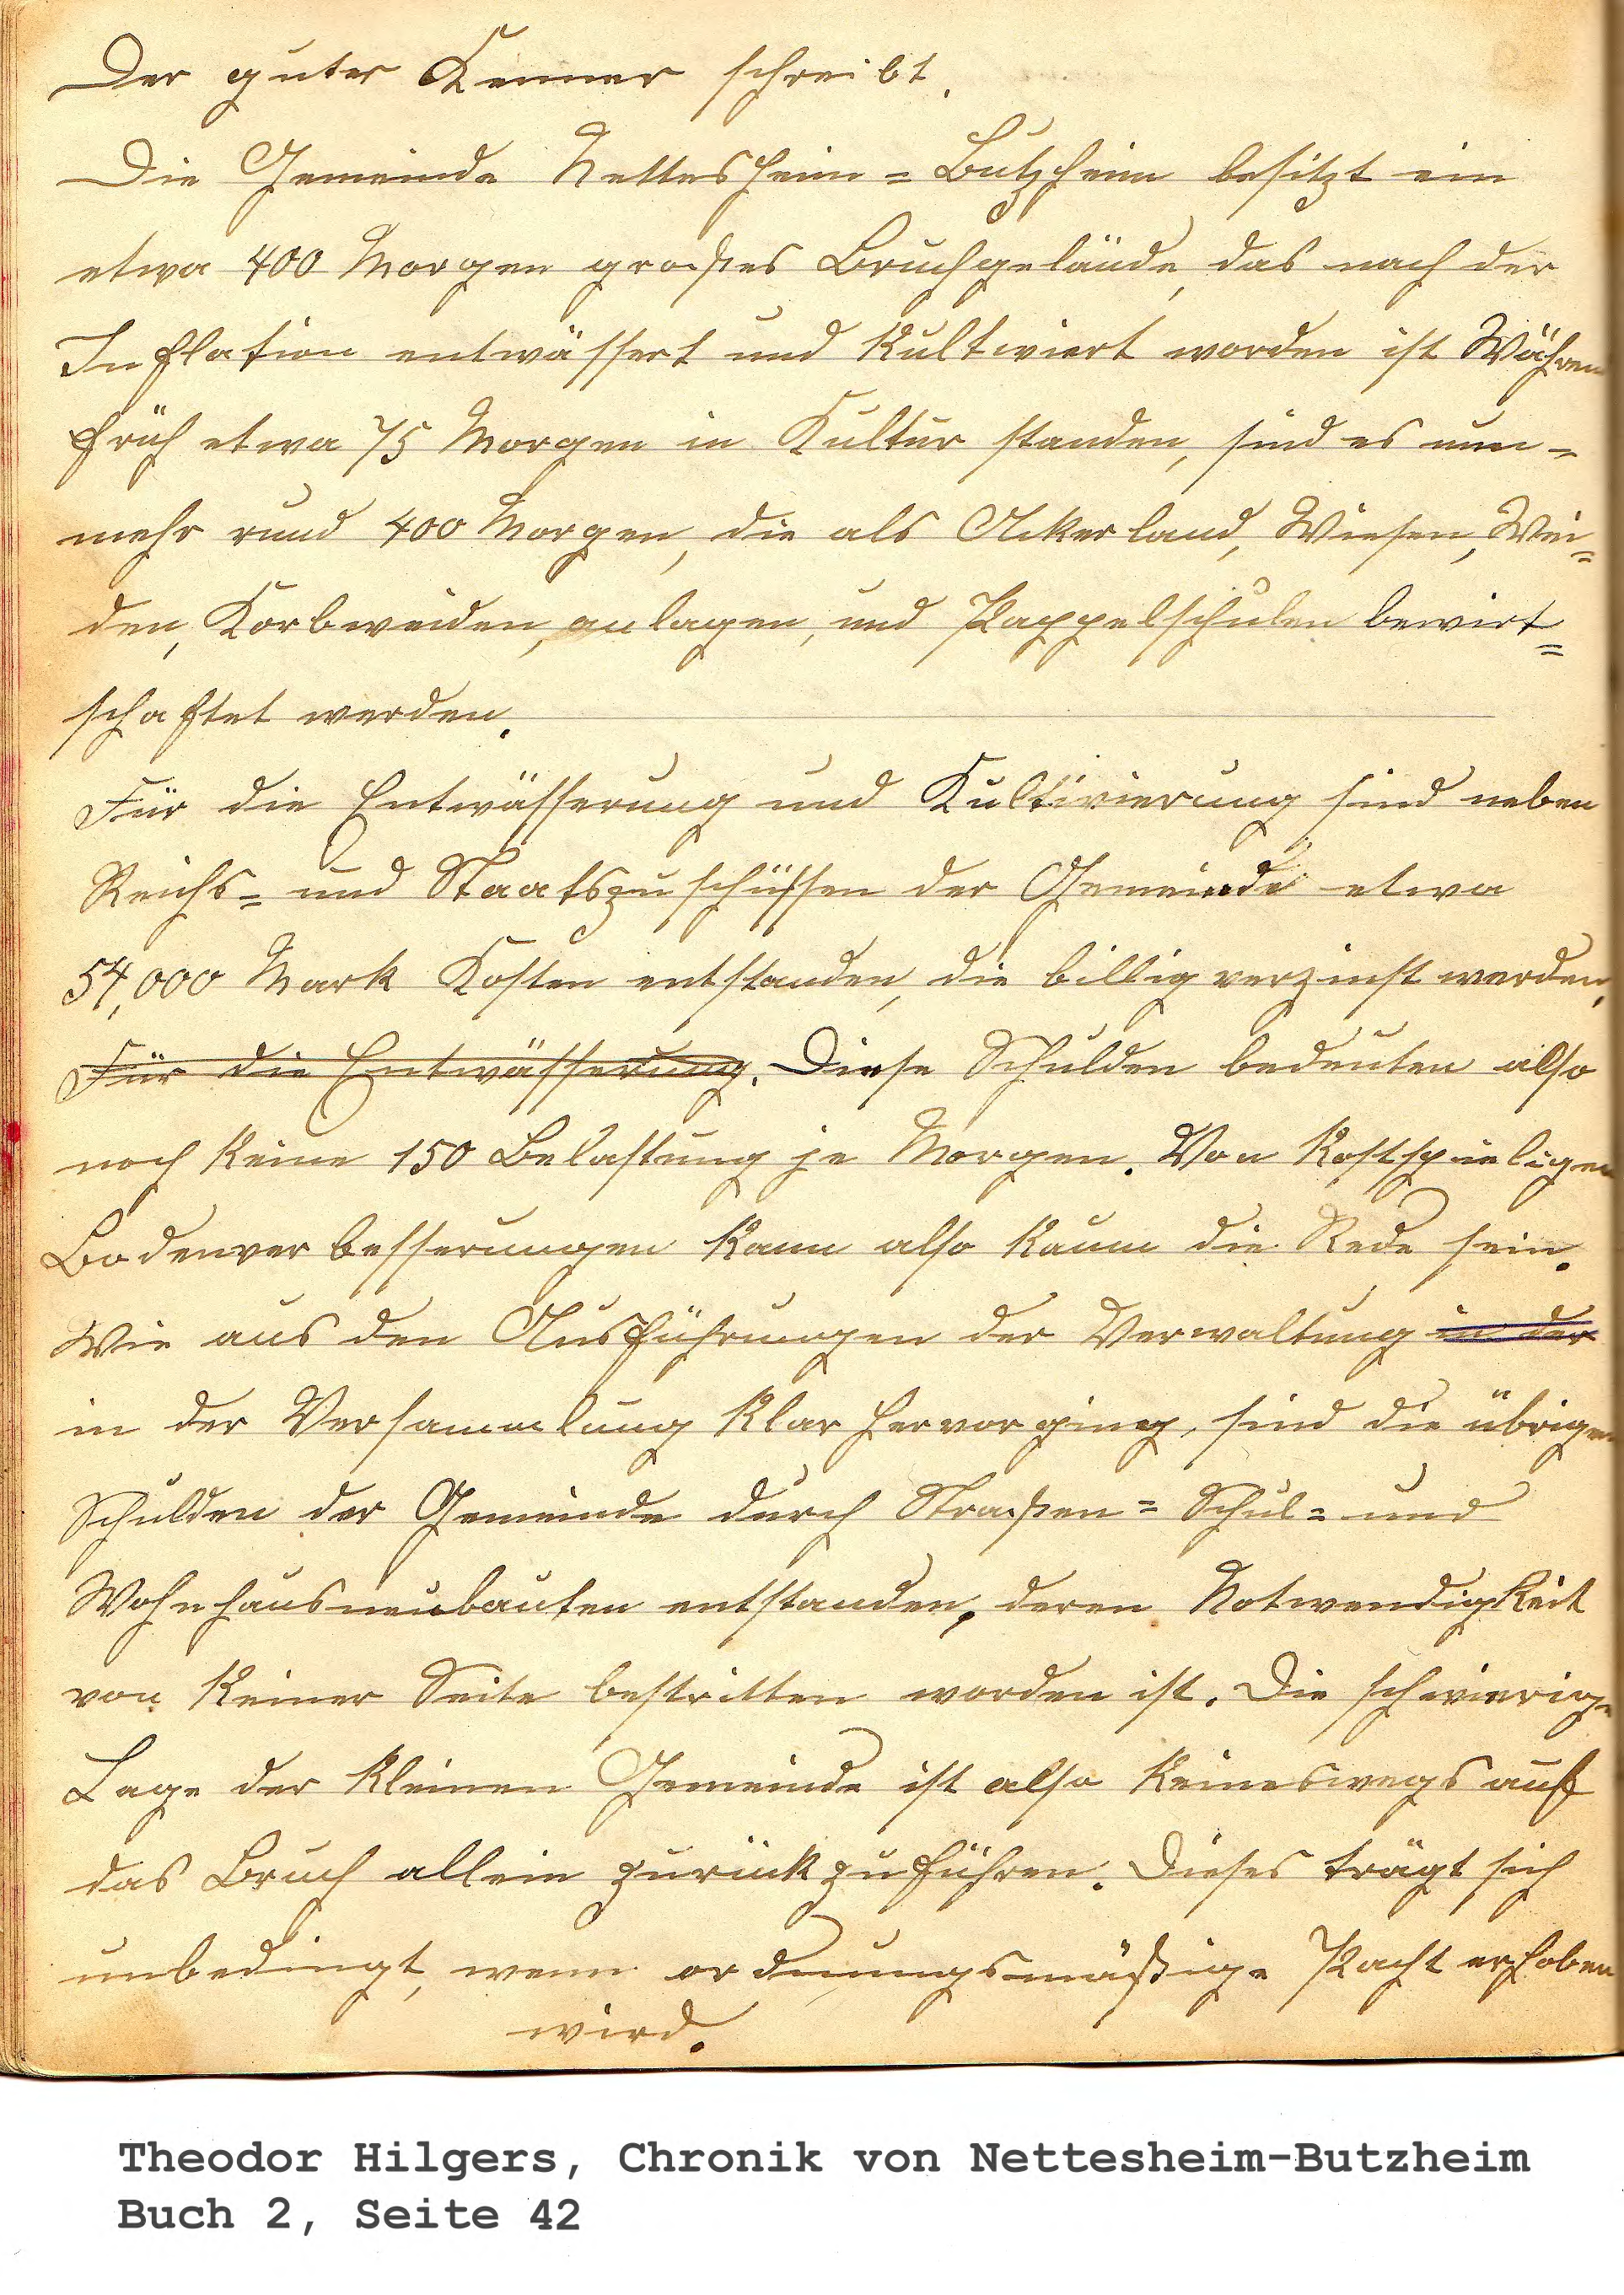 Der guter Kenner schreibt.
Die Gemeinde Nettesheim = Butzheim besitzt ein
etwa 400 Morgen großes Bruchgelände, das nach der
Inflation entwässert und kultiviert worden ist Während
früh etwa 75 Morgen in Kultur standen, sind es nun =
mehr rund 400 Morgen, die als Ackerland, Wiesen, Wei =
den, Korbweiden, anlagen, und Pappelschulen bewirt =
schaftet werden.
Für die Entwässerung und Kultivierung sind neben
Reichs = und Staatszuschüssen der Gemeinde etwa
54,000 Mark Kosten entstanden, die billig verzinst werden,
Für die Entwässerung. Diese Schulden bedeuten also
noch keine 150 Belastung je Morgen. Von kostspieligen
Bodenverbesserungen kann also kaum die Rede sein.
Wie aus den Ausführungen der Verwaltung in der
in der Versammlung klar hervorging, sind die übrigen
Schulden der Gemeinde durch Straßen = Schul = und
Wohnhausneubauten entstanden, deren Notwendigkeit
von keiner Seite bestritten worden ist. Die schwierige
Lage der kleinen Gemeinde ist also keineswegs auf
das Bruch allein zurückzuführen. Dieses trägt sich
unbedingt, wenn ordnungsmäßige Pacht erhoben
wird.
Theodor Hilgers, Chronik von Nettesheim-Butzheim
Buch 2, Seite 42